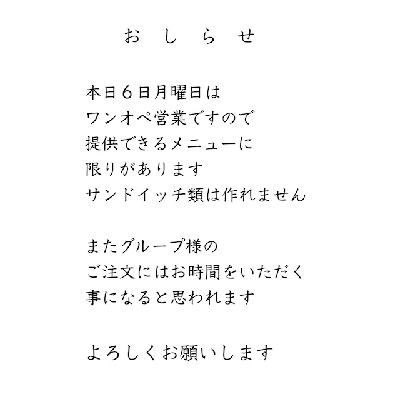 おしらせ
本日６日月曜日は
ワンオペ営業ですので
提供できるメニューに
限りがあります
サンドイッチ類は作れません
またグループ様の
ご注文にはお時間をいただく
事になると思われます
よろしくお願いします